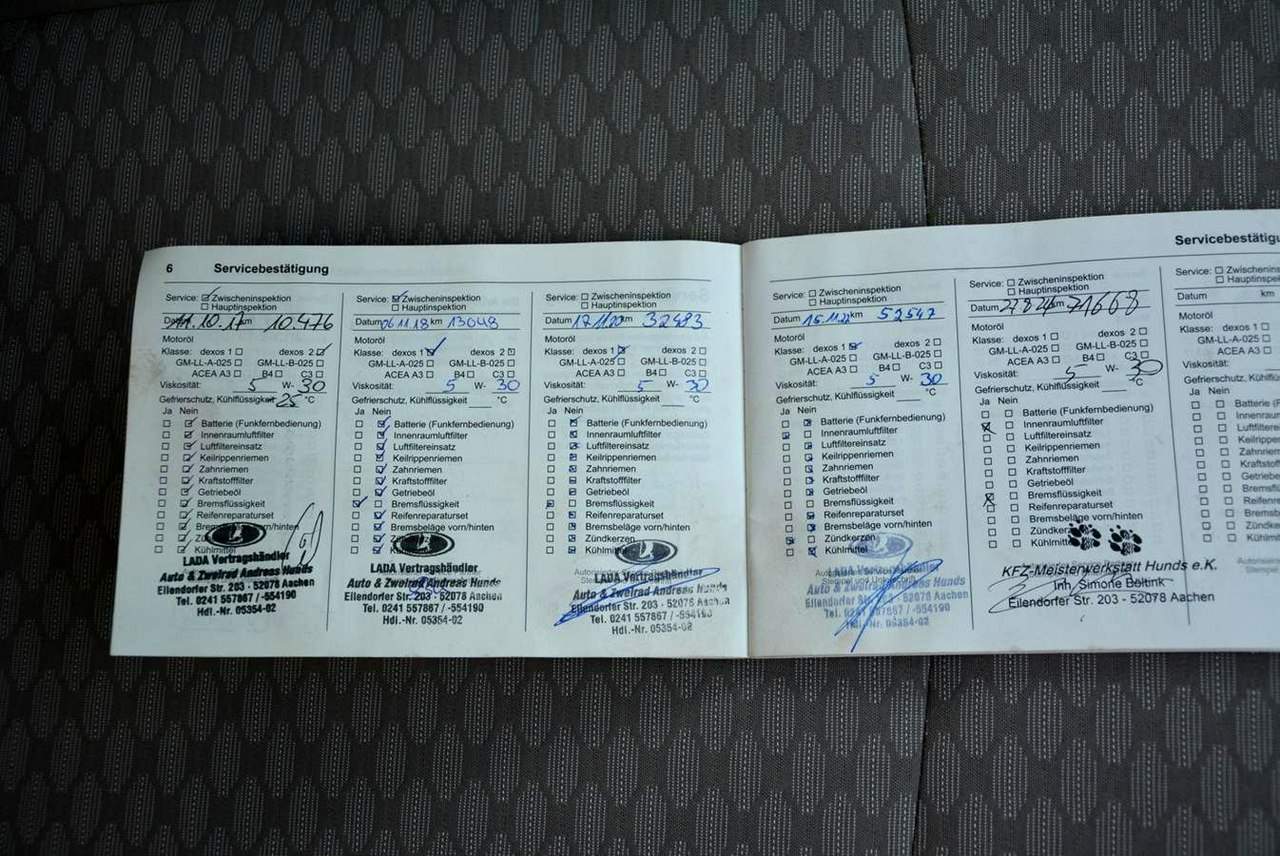 6 Servicebestätigung
Service: Zwischeninspektion
Hauptinspektion
Datum 11.10.17 km 10.476
Motoröl
Klasse: dexos 1 dexos 2
GM-LL-A-025 GM-LL-B-025
ACEA A3 B4 C3
Viskosität: 5 W- 30
Gefrierschutz, Kühlflüssigkeit 25 °C
Ja Nein
Batterie (Funkfernbedienung)
Innenraumluftfilter
Luftfiltereinsatz
Keilrippenriemen
Zahnriemen
Kraftstofffilter
Getriebeöl
Bremsflüssigkeit
Reifenreparaturset
vorn/hinten
Kühlmittel
LADA Vertragshändler
Auto & Zweirad Andreas Hunds
Eilendorfer Str. 203 - 52078 Aachen
Tel. 0241 557867 / -554190
Hdl.-Nr. 05354-02
Service: Zwischeninspektion
Hauptinspektion
Datum 06.11.18 km 13048
Motoröl
Klasse: dexos 1 dexos 2
GM-LL-A-025 GM-LL-B-025
ACEA A3 B4 C3
Viskosität: 5 W- 30
Gefrierschutz, Kühlflüssigkeit °C
Ja Nein
Batterie (Funkfernbedienung)
Innenraumluftfilter
Luftfiltereinsatz
Keilrippenriemen
Zahnriemen
Kraftstofffilter
Getriebeöl
Bremsflüssigkeit
Reifenreparaturset
Bremsbeläge vorn/hinten
LADA Vertragshändler
Auto & Zweirad Andreas Hunds
Eilendorfer Str. 203 - 52078 Aachen
Tel. 0241 557867 / -554190
Hdl.-Nr. 05354-02
Service: Zwischeninspektion
Hauptinspektion
Datum 17.11.20 km 32483
Motoröl
Klasse: dexos 1 dexos 2
GM-LL-A-025 GM-LL-B-025
ACEA A3 B4 C3
Viskosität: 5 W- 30
Gefrierschutz, Kühlflüssigkeit °C
Ja Nein
Batterie (Funkfernbedienung)
Innenraumluftfilter
Luftfiltereinsatz
Keilrippenriemen
Zahnriemen
Kraftstofffilter
Getriebeöl
Bremsflüssigkeit
Reifenreparaturset
Bremsbeläge vorn/hinten
Zündkerzen
Kühlmittel
LADA Vertragshändler
Auto & Zweirad Andreas Hunds
Eilendorfer Str. 203 - 52078 Aachen
Tel. 0241 557867 / -554190
Hdl.-Nr. 05354-02
Service: Zwischeninspektion
Hauptinspektion
Datum 15.11.22 km 52547
Motoröl
Klasse: dexos 1 dexos 2
GM-LL-A-025 GM-LL-B-025
ACEA A3 B4 C3
Viskosität: 5 W- 30
Gefrierschutz, Kühlflüssigkeit °C
Ja Nein
Batterie (Funkfernbedienung)
Innenraumluftfilter
Luftfiltereinsatz
Keilrippenriemen
Zahnriemen
Kraftstofffilter
Getriebeöl
Bremsflüssigkeit
Reifenreparaturset
Bremsbeläge vorn/hinten
Zündkerzen
Kühlmittel
LADA Vertragshändler
Auto & Zweirad Andreas Hunds
Eilendorfer Str. 203 - 52078 Aachen
Tel. 0241 557867 / -554190
Hdl.-Nr. 05354-02
Service: Zwischeninspektion
Hauptinspektion
Datum km 71668
Motoröl
Klasse: dexos 1 dexos 2
GM-LL-A-025 GM-LL-B-025
ACEA A3 B4 C3
Viskosität: 5 W- 30
Gefrierschutz, Kühlflüssigkeit °C
Ja Nein
Batterie (Funkfernbedienung)
Innenraumluftfilter
Luftfiltereinsatz
Keilrippenriemen
Zahnriemen
Kraftstofffilter
Getriebeöl
Bremsflüssigkeit
Reifenreparaturset
Bremsbeläge vorn/hinten
Zündkerzen
Kühlmittel
KFZ-Meisterwerkstatt Hunds e.K.
Inh. Simone Boltink
Eilendorfer Str. 203 - 52078 Aachen
Servicebestätigu
Service: Zwischenins
Hauptinspe
Datum km
Motoröl
Klasse: dexos 1
GM-LL-A-025
ACEA A3
Viskosität:
Gefrierschutz, Kühlflüssi
Ja Nein
Batterie (F
Innenraum
Luftfiltere
Keilrippen
Zahnriem
Kraftstoff
Getriebe
Bremsflü
Reifenre
Bremsbe
Zündker
Kühlmitt